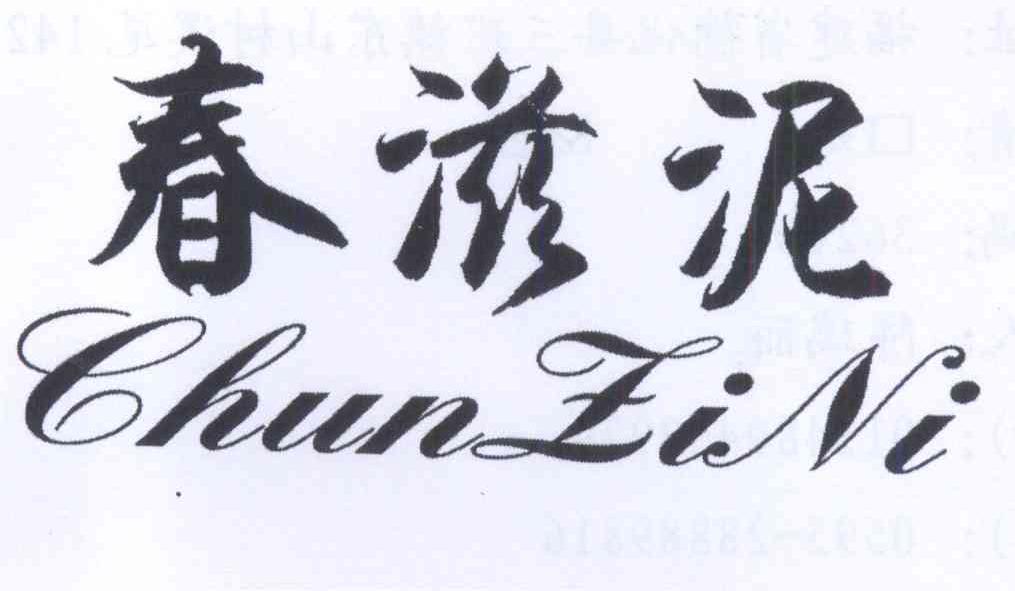 春滋泥
ChunZiNi